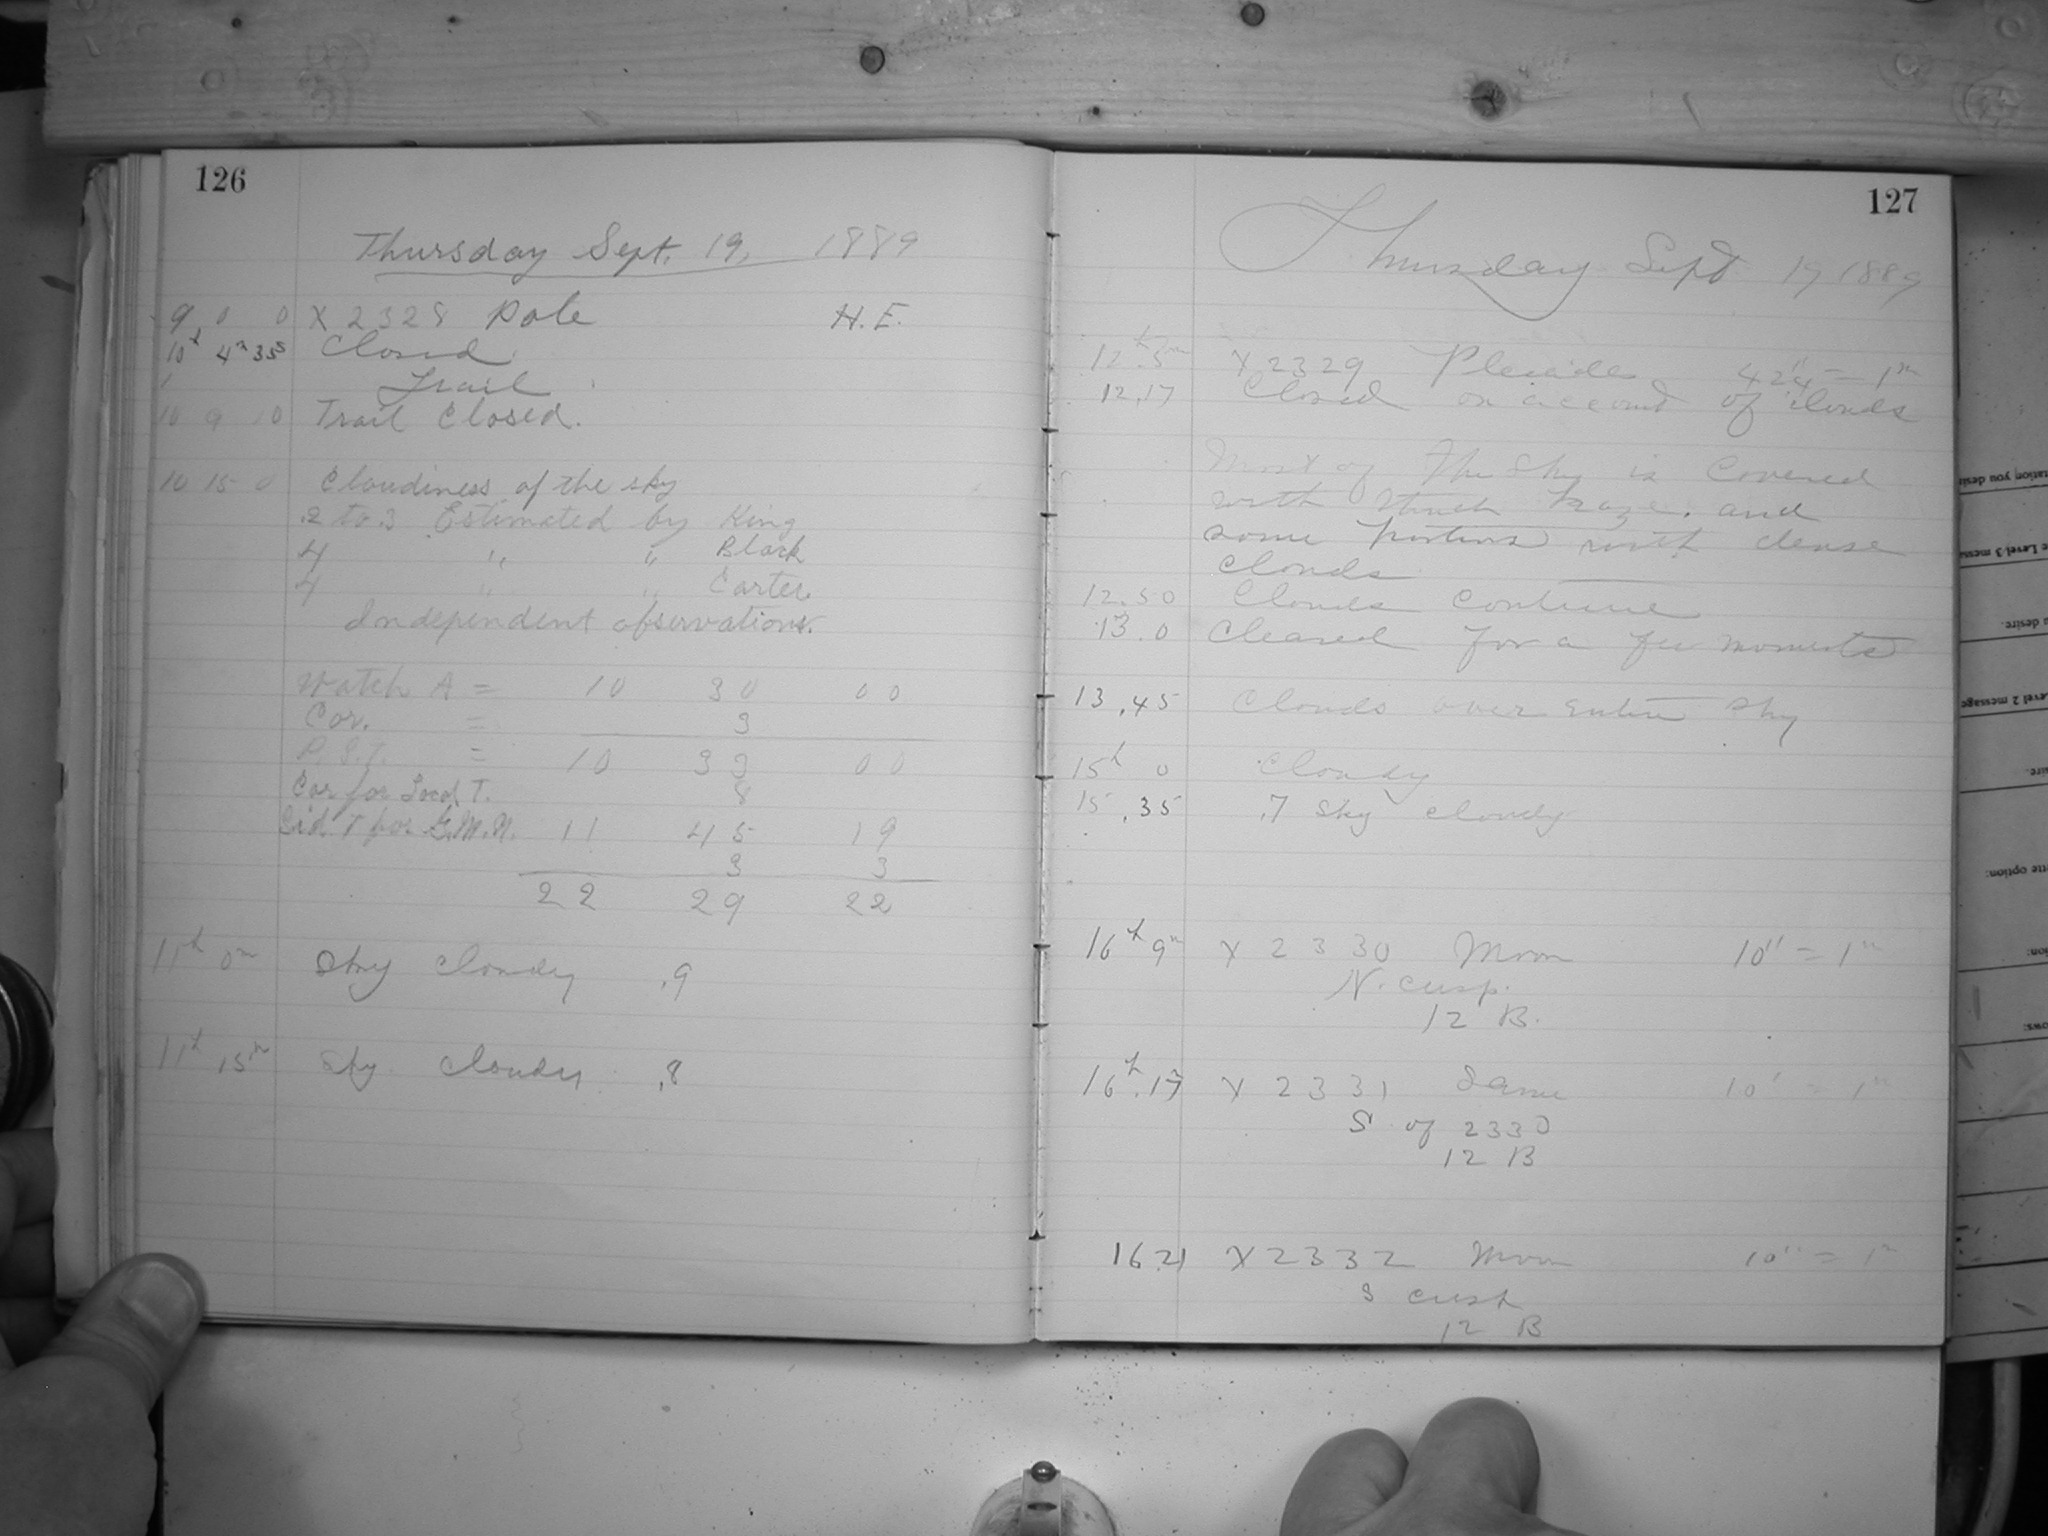 126
Thursday Sept. 19, 1889
9 0 0 X 2328 Pole H.E.
10h 4m 35s Closed
Trail
10 9 10 Trail Closed.
10 15 0 Cloudiness of the sky
.2 to .3 Estimated by King
4 " " Black
4 " " Carter
Independent observations.
Watch A = 10 30 00
Cor. = 3
P.S.T. = 10 33 00
Cor for Local T. 8
Sid. T for G.M.N. 11 45 19
3 3
22 29 22
11h 0m Sky cloudy .9
11h 15m Sky cloudy .8
127
Thursday Sept 19 1889
12h 5m X 2329 Pleiades 42"4 = 1m
12.17 Closed on account of clouds
Most of the Sky is Covered
with thick haze. and
some portions with dense
clouds
12.50 Clouds continue
13.0 Cleared for a few moments
13.45 Clouds over entire sky
15h 0 Cloudy
15.35 .7 sky cloudy
16h 9m X 2330 Moon 10" = 1m
N. cusp.
12 B.
16h.17 X 2331 Same 10" = 1m
S of 2330
12 B
16.21 X 2332 Moon 10" = 1m
S cusp
12 B